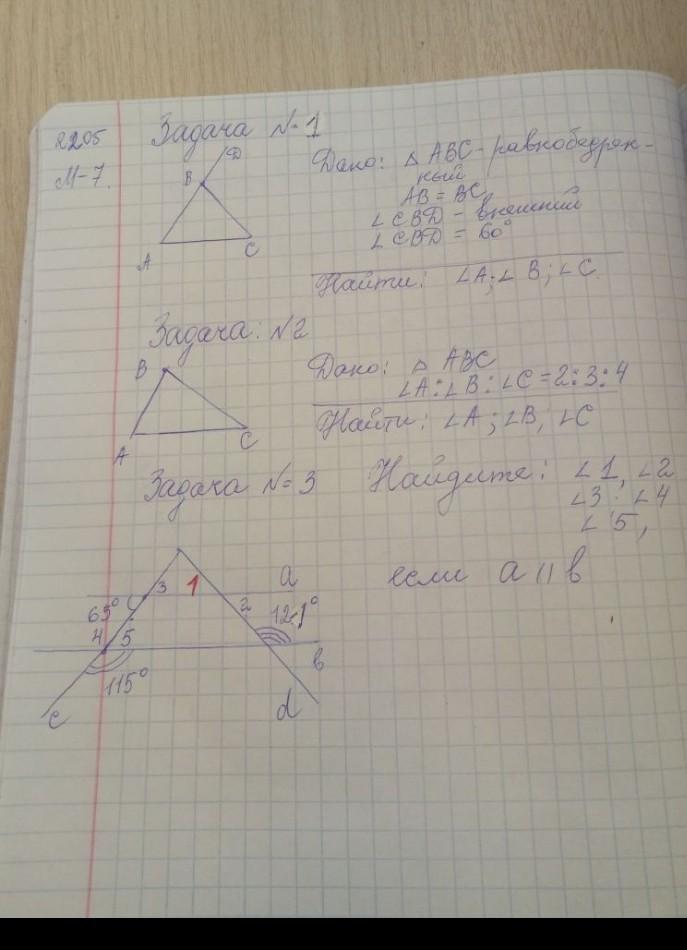 Задача №1
М-7.
D
B
A
C
Дано: △ ABC - равнобедрен-
ный
AB = BC
∠CBD - внешний
∠CBD = 60°
Найти: ∠A; ∠B; ∠C.
Задача: №2
B
A
C
Дано: △ ABC
∠A:∠B:∠C = 2:3:4
Найти: ∠A; ∠B, ∠C
Задача №3
Найдите: ∠1, ∠2
∠3 ∠4
∠5,
если a || b
3
1
a
65°
2
4
5
b
115°
c
d